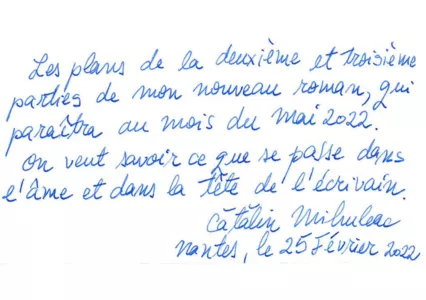 Les plans de la deuxième et troisième
parties de mon nouveau roman, qui
paraîtra au mois du mai 2022.
On veut savoir ce que se passe dans
l'âme et dans la tête de l'écrivain.
Cătălin Mihuleac
Nantes, le 25 Février 2022